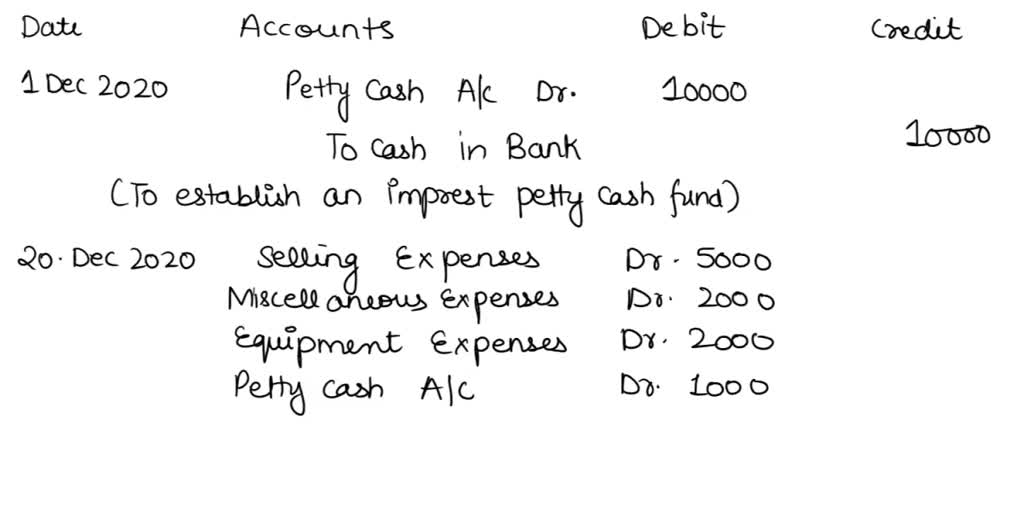 Date Accounts Debit Credit
1 Dec 2020 Petty Cash A/c Dr. 10000
To Cash in Bank 10000
(To establish an imprest petty cash fund)
20. Dec 2020 Selling Expenses Dr. 5000
Miscellaneous Expenses Dr. 2000
Equipment Expenses Dr. 2000
Petty cash A/c Dr. 1000